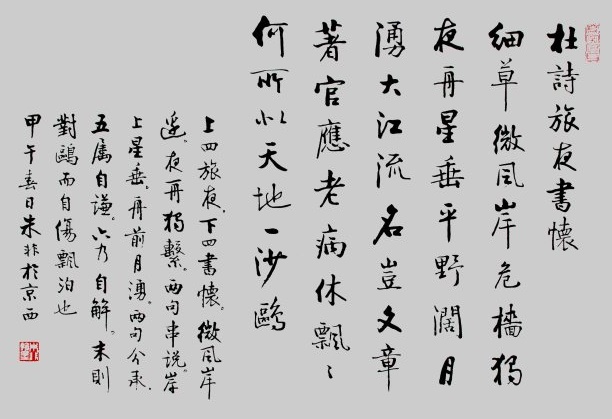 杜詩旅夜書懷
細草微风岸危檣獨
夜舟星垂平野闊月
湧大江流名豈文章
著官應老病休飄〻
何所似天地一沙鷗
上四旅夜、下四書懷。微风岸
邊。夜舟獨繫。兩句串説。岸
上星垂。舟前月湧。兩句分承。
五属自謙。六乃自解。末則
對鷗而自傷飄泊也
甲午春日朱非於京西